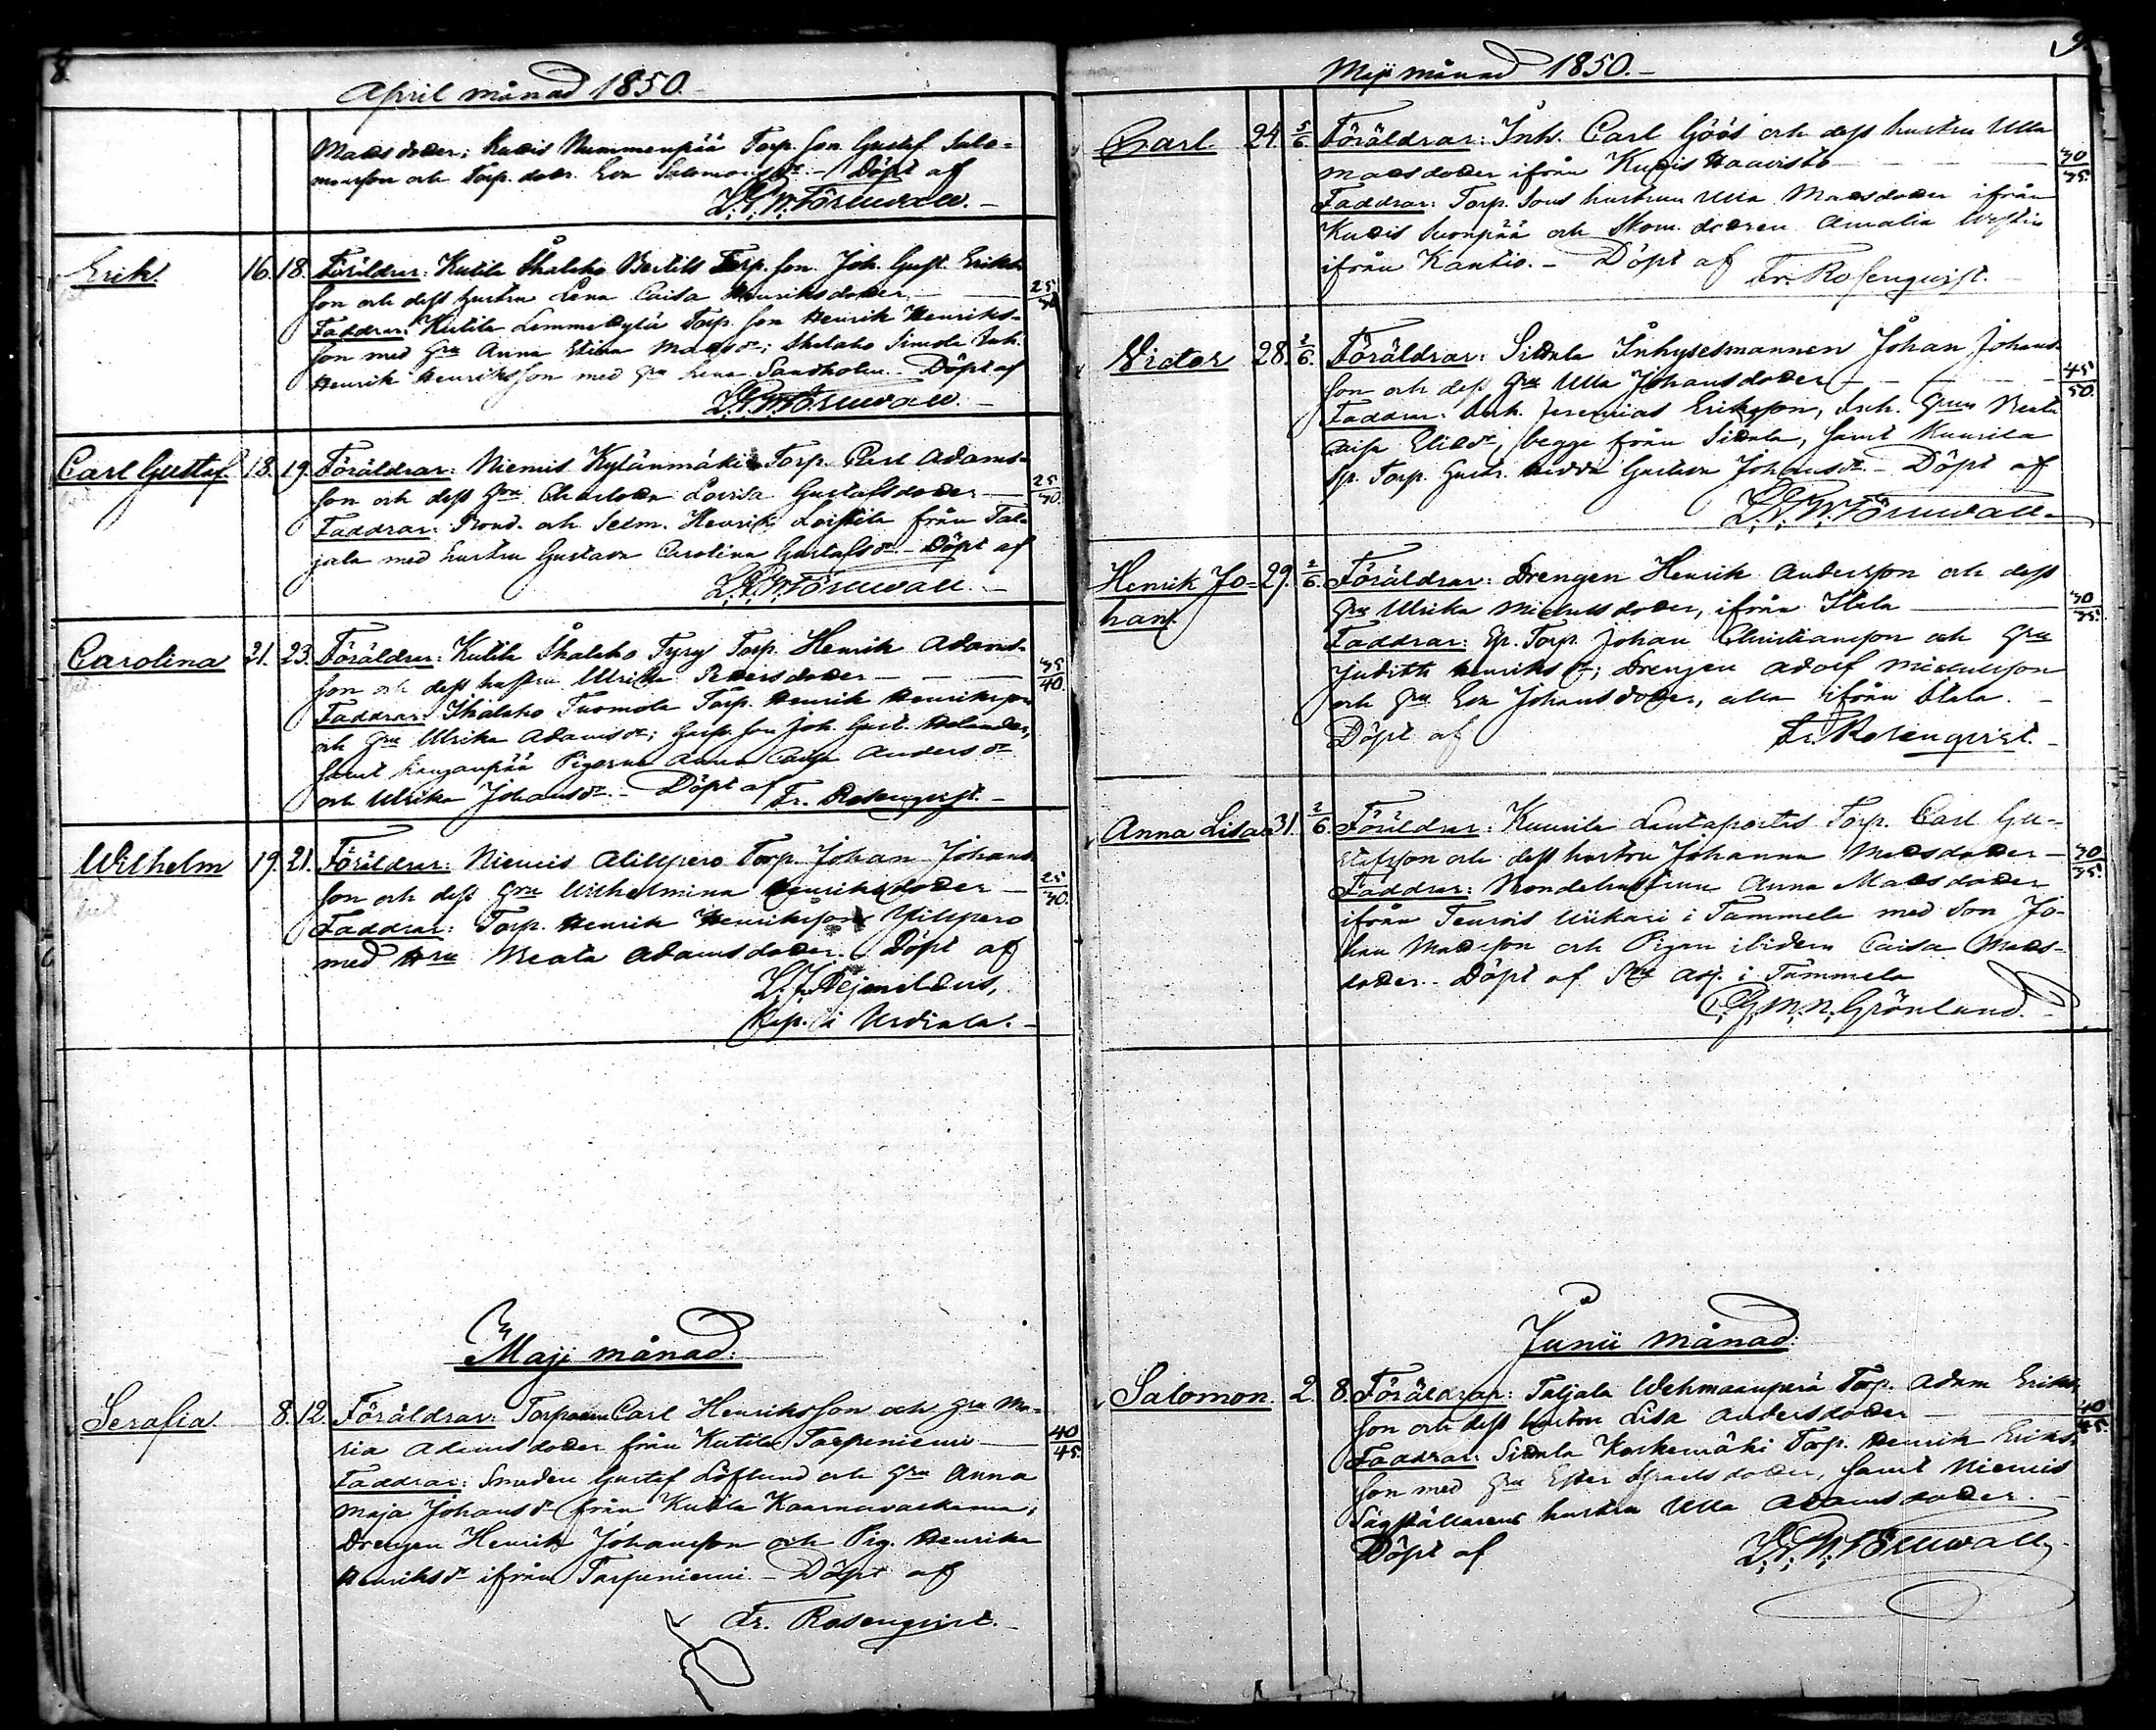 8.
April månad 1850.
Matsdotter; Kutis Nummenpää Torp. son Gustaf Salo-
monsson och Torp. dotr. Eva Salomonsdr. - Döpt af
L.G.W. Törnwall.
Erik. 16. 18. Föräldrar: Kutila Skalcko Bertils Torp. son Joh. Gust. Eriks-
son och dess hustru Lena Caisa Henriksdotter 25/30
Faddrar: Kutila Lemmetylä Torp. son Henrik Henriks-
son med Hru Anna Stina Matsdr; Skalcko Simola Inh.
Henrik Henriksson med Hru Lena Sandholm. - Döpt af
L.G.W. Törnwall.
Carl Gustaf. 18. 19. Föräldrar: Niemis Kylänmäki Torp. Carl Adams-
son och dess Hru Charlotta Lovisa Gustafsdotter 25/30.
Faddrar: Bond. och Sexm. Henrik Loistila från Tal-
jala med hustru Gustava Carolina Gustafsdr. - Döpt af
L.G.W. Törnwall.
Carolina 21. 23. Föräldrar: Kutila Skalcko Tyry Torp. Henrik Adams-
son och dess hustru Ulrika Petersdotter - 35/40.
Faddrar: Skalcko Tuomola Torp. Henrik Henriksson
och Hru Ulrika Adamsdr; son Joh. Gust. Helander,
samt Kangaspää Pigorna Anna Caisa Andersdr
och Ulrika Johansdr. - Döpt af Fr. Rosenqvist. -
Wilhelm 19. 21. Föräldrar: Niemis Alitupero Torp. Johan Johans-
son och dess Hru Wilhelmina Henriksdotter 25/30.
Faddrar: Torp. Henrik Henriksson Ylitupero
med Hru Beata Adamsdotter. Döpt af
L. J. Pejmilaeus,
Kap. i Urdiala. -
Maji månad:
Serafia. 8. 12. Föräldrar: Torparen Carl Henriksson och Hru Ma-
ria Adamsdotter från Kutila Tarpeniemi 40/45.
Faddrar: Smeden Gustaf Löflund och Hru Anna
Maja Johansdr från Kutila Kaarnavaskama;
Drengen Henrik Johansson och Pig. Henrika
Henriksdr ifrån Tarpeniemi - Döpt af
Fr. Rosenqvist. -
9.
Maji månad 1850. -
Carl. 24. 5/6. Föräldrar: Inh. Carl Göös och dess hustru Ulla
Matsdotter ifrån Kutis Haavisto 30/35.
Faddrar: Torp. Sons hustrun Ulla Matsdotter ifrån
Kutis Suonpää och Skom. dottren Amalia Westin
ifrån Kantio. - Döpt af Fr. Rosenqvist.
Victor 28. 2/6. Föräldrar: Sittala Inhysesmannen Johan Johans-
son och dess Hru Ulla Johansdotter 45/50.
Faddrar: Inh. Jeremias Eriksson, Inh. Hrun Beata
Caisa Eliedr, begge från Sittala, samt Kuurila
Sp. Torp. Hustr. Hedda Gustava Johansdr. - Döpt af
L.G.W. Törnwall.
Henrik Jo- 29. 2/6. Föräldrar: Drengen Henrik Andersson och dess
han. Hru Ulrika Michelsdotter, ifrån Ittala 30/35.
Faddrar: Sp. Torp. Johan Christiansson och Hru
Judith Henriksdr; Drengen Adolf Michelsson
och Hru Eva Johansdotter, alla ifrån Ittala. -
Döpt af Fr. Rosenqvist. -
Anna Lisa 31. 2/6. Föräldrar: Kuurila Lautaportas Torp. Carl Gu-
stafsson och dess hustru Johanna Matsdotter 30/35.
Faddrar: Bondehustrun Anna Matsdotter
ifrån Teuros Uikari i Tammela med son Jo-
han Matsson och Pigan ibidem Caisa Mats-
dotter. - Döpt af Adj. i Tammela
C.G.M.N. Grönlund.
Junii månad:
Salomon. 2. 8. Föräldrar: Taljala Wehmaanperä Torp. Adam Eriks-
son och dess hustru Lisa Andersdotter 40/45.
Faddrar: Sittala Koskenmäki Torp. Henrik Eriks-
son med Hru Ester Israelsdotter, samt Niemis
Sågställarens hustru Ulla Adamsdotter. -
Döpt af L.G.W. Törnwall.